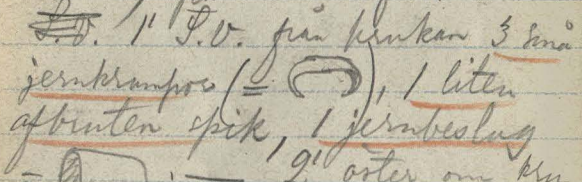 S.v. 1' S.v. från krukan 3 små
jernkrampor (= ), 1 liten
afbruten spik, 1 jernbeslag
= 2' öster om kru